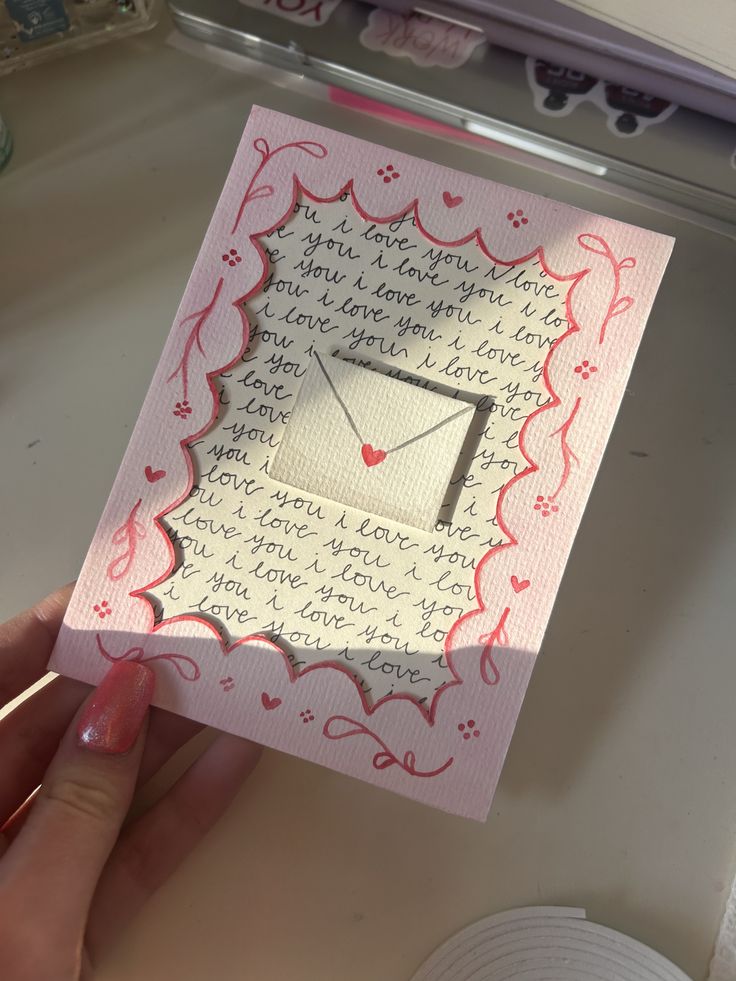 YOU
WORK
ou i love you i love
e you i love you i lo
you i love you i love
you i love you i love you
i love you i love you
you i love you
e you you
love e i
i love love
you you
you i
love you i love you
ou i love you i lov
love you i love you
you i love you i lo
e you i love you i
i love you i love